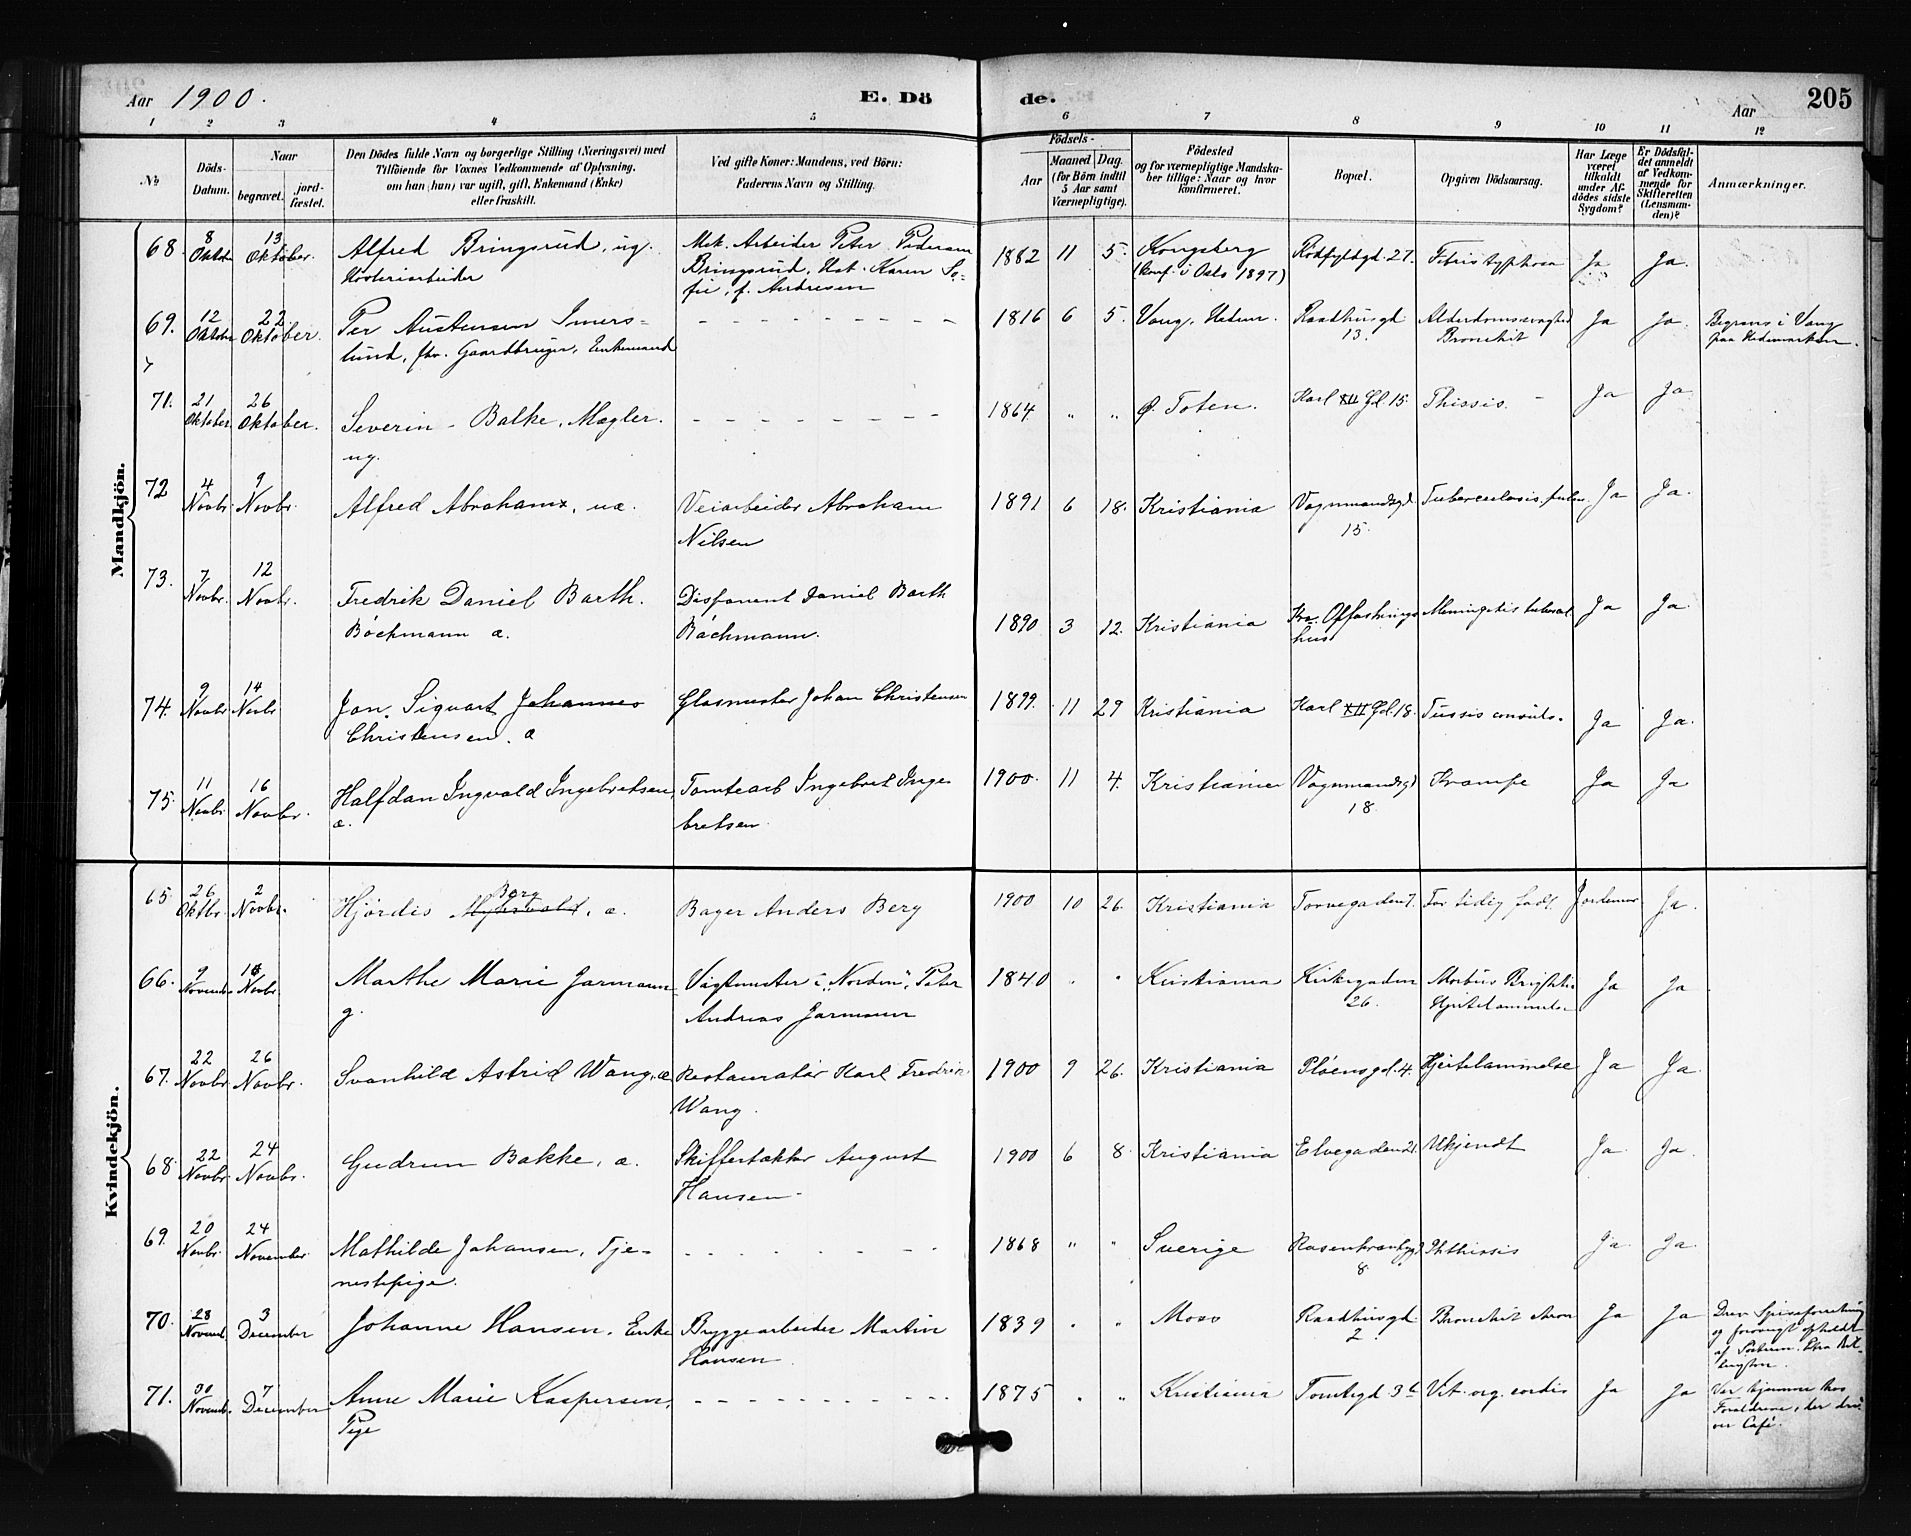 Aar 1900.
E. Dö
de.
Aar
205
1 2 3 4 5 6 7 8 9 10 11 12
No
Döds-
Datum.
Naar
begravet.
jord-
fæstet.
Den Dödes fulde Navn og borgerlige Stilling (Næringsvei) med
Tilföiende for Voxnes Vedkommende af Oplysning,
om han (hun) var ugift, gift, Enkemand (Enke)
eller fraskilt.
Ved gifte Koner: Mandens, ved Börn:
Faderens Navn og Stilling.
Födsels-
Aar
Maaned
Dag.
(for Börn indtil
5 Aar samt
Værnepligtige).
Födested
og for værnepligtige Mandska-
ber tillige: Naar og hvor
konfirmeret.
Bopæl.
Opgiven Dödsaarsag.
Har Læge
været
tilkaldt
under Af-
dödes sidste
Sygdom?
Er Dödsfal-
det anmeldt
af Vedkom-
mende for
Skifteretten
(Lensman-
den)?
Anmærkninger.
Mandkjön.
68. 8 Oktob 13 Oktober. Alfred Bringsrud, ug. Mek. Arbeider Peter Pedersen 1882 11 5. Kongsberg 27. Ja Ja.
Bringsrud, Karen So-
(konf. i Oslo 1897)
fie, f. Andresen
69. 12 Oktober 22 Oktober. Per Austensen Imers- 1816 6 5. Vang, Hedm. Raadhusgd Ja Ja. Begraves i Vang
lund, fhv. Gaardbruger, Enkemand
13. Bronchit
paa Hedemarken.
71. 21 Oktober. 26 Oktober. Severin Balke, Mægler. 1864 " " Ø. Toten. Karl XII Gd. 15. Thissis. Ja Ja
ug.
72 4 Novbr. 9 Novbr. Alfred Abraham, ua. Veiarbeider Abraham 1891 6 18. Kristiania Vognmandsgd Tuberculosis pulm. Ja Ja.
Nilsen
15.
73. 7 Novbr. 12 Novbr. Fredrik Daniel Barth. Disponent Daniel Barth 1890 3 12. Kristiania Kra. Opfostrings Meningitis tubercul. Ja Ja.
Böchmann a.
Bachmann.
hus
74. 9 Novbr 14 Novbr Jon Sigvart Johannes Glasmester Johan Christensen 1899. 11 29 Kristiania Karl XII Gd. 18. Tussis convuls. Ja Ja.
Christensen. a
75. 11 Novbr 16 Novbr. Halfdan Ingvald Ingebretsen, Tomtearb Ingebret Inge 1900. 11 4. Kristiania Vognmandsgd Krampe Ja Ja
a.
bretsen.
18.
Kvindekjön.
65. 26 Oktbr. 2 Novbr. Hjördis Berg, a. Bager Anders Berg 1900 10 26. Kristiania Torvegaden 7. For tidig födt. Jordemor Ja.
66. 9 Novemb. Novbr. Marthe Marie Jarmann Vagtmester i "Norden", Peter 1840 " " Kristiania Kirkegaden Morbus Brightii Ja Ja
g.
Andreas Jarmann
26. Hjertelammelse
67. 22 Novbr 26 Novbr. Svanhild Astrid Wang, a Restauratör Karl Fredrik 1900 9 26. Kristiania Pløensgd. 4. Hjertelammelse Ja Ja.
Wang.
68. 22 Novbr 24 Novbr. Gudrun Bakke, a. Skiffertækker August 1900 6 8. Kristiania Elvegaden 21. Ukjendt Ja. Ja.
Hansen
69. 20 Novbr. 24 November Mathilde Johansen, Tje- 1868 " " Sverige Rosenkrantzgd Phthisis Ja. Ja.
nestepige.
8.
70. 28 Novemb. 3 December Johanne Hansen, Enke Bryggearbeider Martin 1839 " " Moss Raadhusgd. Bronchit chron Ja Ja Drev Spiseforretning
Hansen
2.
og forövrigt opholdt
af
71. 30 Novemb. 7 December Anne Marie Kaspersen, 1875 " " Kristiania Tomtegd. 3 b Vit. org. cordis Ja Ja Var hjemme hos
Pige
Forældrene, der dri-
ver Café.